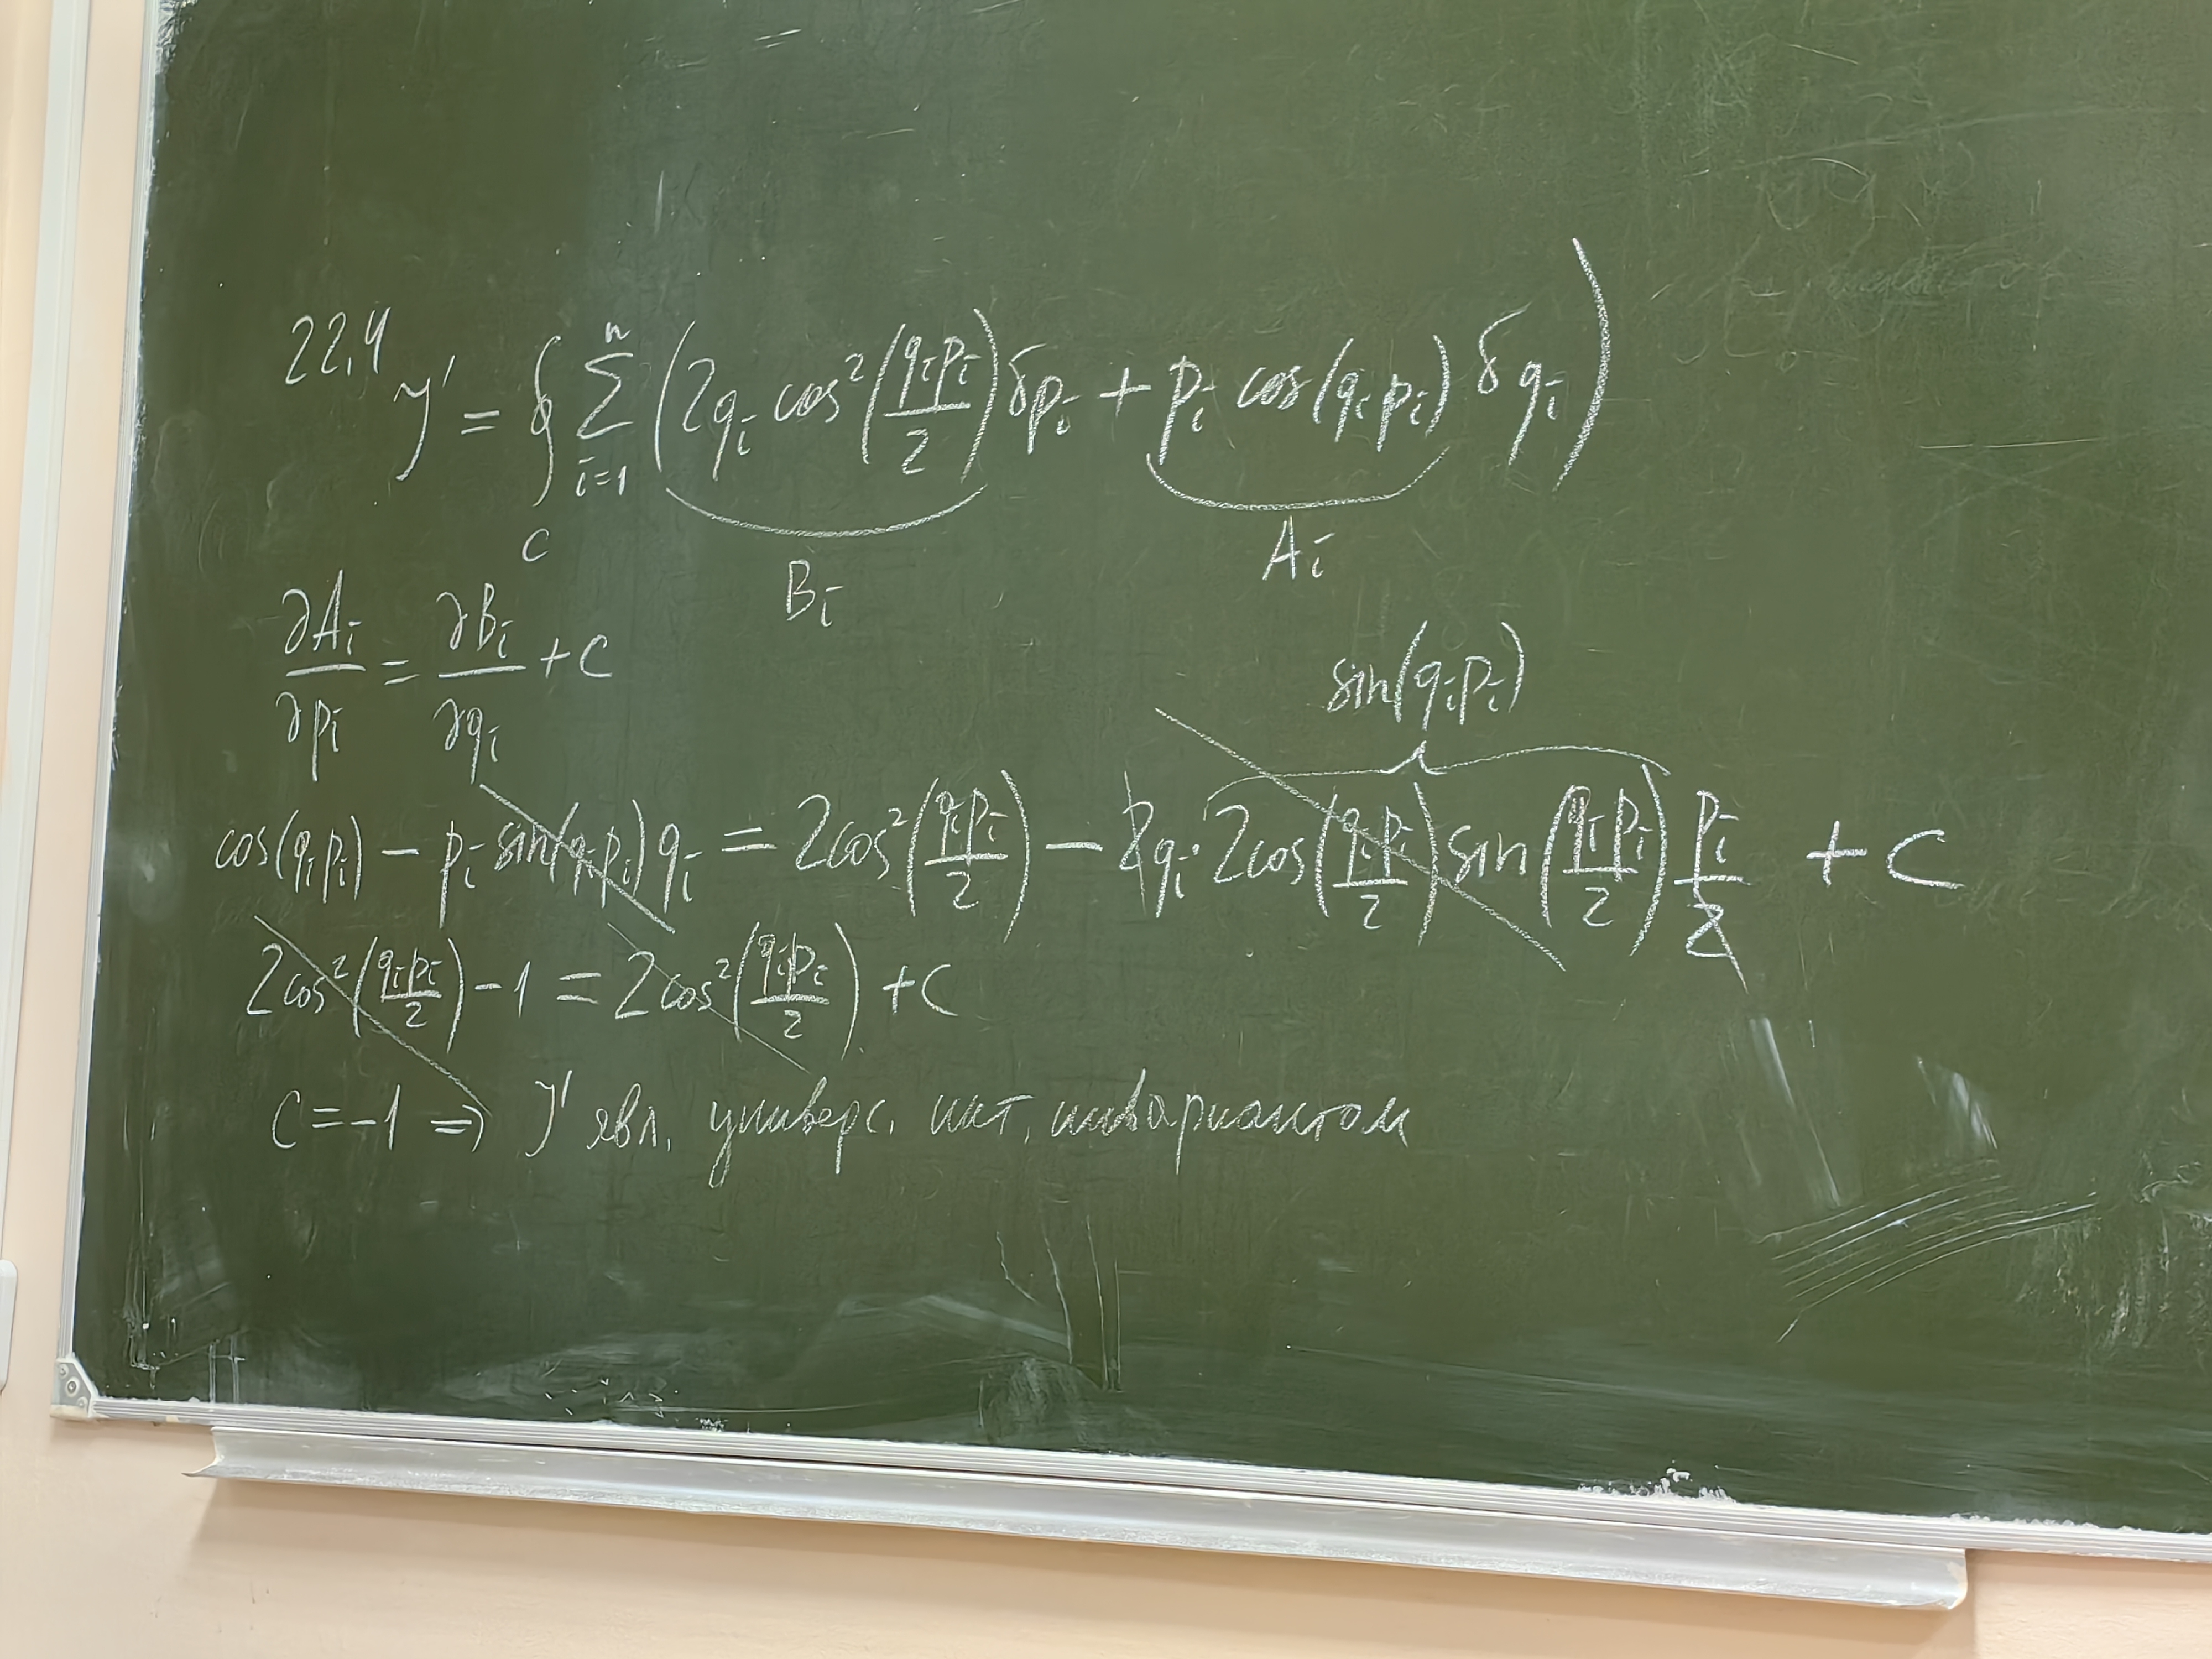 22.4 J' = ∮_C Σ_{i=1}^{n} (2q_i cos²(q_i p_i / 2) δp_i + p_i cos(q_i p_i) δq_i)
B_i A_i
∂A_i/∂p_i = ∂B_i/∂q_i + C
sin(q_i p_i)
cos(q_i p_i) − p_i sin(q_i p_i) q_i = 2cos²(q_i p_i / 2) − 2q_i · 2cos(q_i p_i / 2) sin(q_i p_i / 2) p_i / 2 + C
2cos²(q_i p_i / 2) − 1 = 2cos²(q_i p_i / 2) + C
C = −1 ⇒ J' явл. универс. инт. инвариантом